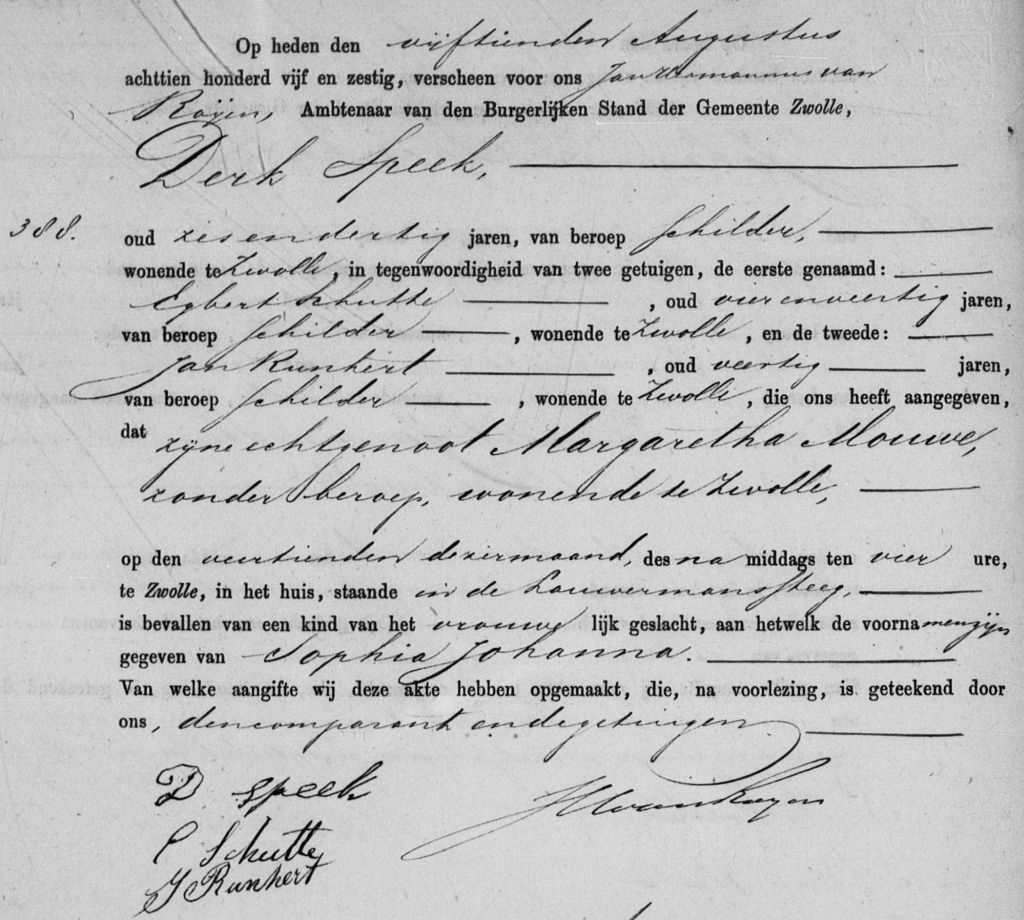 Op heden den vijftienden Augustus
achttien honderd vijf en zestig, verscheen voor ons Jan Hermannus van
Roijen, Ambtenaar van den Burgerlijken Stand der Gemeente Zwolle,
Derk Speek,
388.
oud zes en dertig jaren, van beroep Schilder,
wonende te Zwolle, in tegenwoordigheid van twee getuigen, de eerste genaamd:
Egbert Schutte, oud vier en veertig jaren,
van beroep Schilder, wonende te Zwolle, en de tweede:
Jan Runhert, oud veertig jaren,
van beroep Schilder, wonende te Zwolle, die ons heeft aangegeven,
dat zijne echtgenoot Margaretha Mouwe,
zonder beroep, wonende te Zwolle,
op den veertienden dezer maand, des na middags ten vier ure,
te Zwolle, in het huis, staande in de Louwermanssteeg,
is bevallen van een kind van het vrouwe lijk geslacht, aan hetwelk de voornamen zijn
gegeven van Sophia Johanna.
Van welke aangifte wij deze akte hebben opgemaakt, die, na voorlezing, is geteekend door
ons, den comparant en de getuigen
D Speek
JHvanRoyen
E Schutte
J Runhert